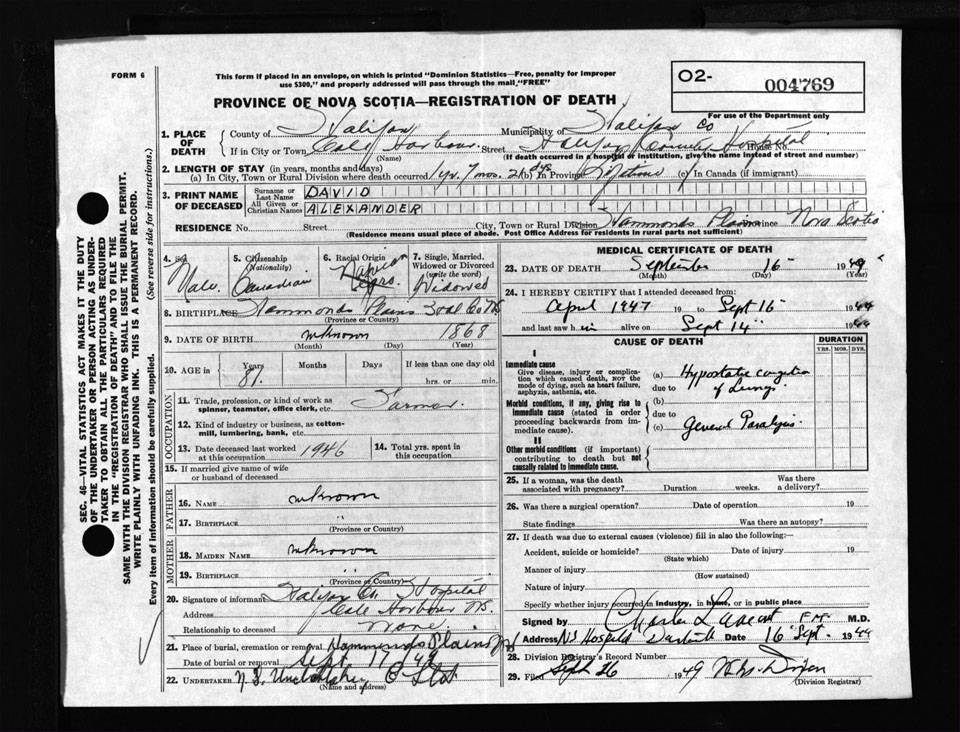 FORM 6
This form if placed in an envelope, on which is printed "Dominion Statistics—Free, penalty for improper
use $300", and properly addressed will pass through the mail, "FREE"
O2- 004769
For use of the Department only
PROVINCE OF NOVA SCOTIA—REGISTRATION OF DEATH
1. PLACE OF DEATH
County of Halifax Municipality of Halifax Co
If in City or Town Cole Harbour Street Halifax County Hospital
(Name) (If death occurred in a hospital or institution, give the name instead of street and number)
2. LENGTH OF STAY (in years, months and days)
(a) In City, Town or Rural Division where death occurred 1 yr. 7 mos. 21 dys (b) In Province Lifetime (c) In Canada (if immigrant)
3. PRINT NAME OF DECEASED
Surname or Last Name DAVID
All Given or Christian Names ALEXANDER
RESIDENCE No. Street City, Town or Rural Division Hammonds Plains Province Nova Scotia
(Residence means usual place of abode. Post Office Address for residents in rural parts not sufficient)
4. Sex Male
5. Citizenship (Nationality) Canadian
6. Racial Origin Negro
7. Single, Married, Widowed or Divorced (write the word) Widowed
8. BIRTHPLACE Hammonds Plains
(Province or Country)
9. DATE OF BIRTH unknown 1868
(Month) (Day) (Year)
10. AGE in Years 81 Months Days If less than one day old
hrs. or min.
OCCUPATION
11. Trade, profession, or kind of work as
spinner, teamster, office clerk, etc. Farmer
12. Kind of industry or business, as cotton-
mill, lumbering, bank, etc.
13. Date deceased last worked
at this occupation 1946
14. Total yrs. spent in
this occupation
15. If married give name of wife
or husband of deceased
FATHER
16. NAME unknown
17. BIRTHPLACE "
(Province or Country)
MOTHER
18. MAIDEN NAME unknown
19. BIRTHPLACE
(Province or Country)
20. Signature of informant Halifax Co. Hospital
Address Cole Harbour N.S.
Relationship to deceased None
21. Place of burial, cremation or removal Hammonds Plains NS
Date of burial or removal Sept 17 49
22. UNDERTAKER N.S. Undertaking Co
(Name and address)
MEDICAL CERTIFICATE OF DEATH
23. DATE OF DEATH September 16 1949
(Month) (Day) (Year)
24. I HEREBY CERTIFY that I attended deceased from:
April 1947 19 to Sept 16 1949
and last saw him alive on Sept 14 1949
CAUSE OF DEATH
DURATION
YRS. MOS. DYS.
I
Immediate cause
Give disease, injury or complica-
tion which caused death, NOT the
mode of dying, such as heart failure,
asphyxia, asthenia, etc.
(a) Hypostatic congestion
due to of Lungs
Morbid conditions, if any, giving rise to
immediate cause (stated in order
proceeding backwards from im-
mediate cause).
(b)
due to
(c) General Paralysis
II
Other morbid conditions (if important)
contributing to death but not
causally related to immediate cause.
25. If a woman, was the death
associated with pregnancy? Duration weeks. Was there
a delivery?
26. Was there a surgical operation? Date of operation 19
State findings Was there an autopsy?
27. If death was due to external causes (violence) fill in also the following:—
Accident, suicide or homicide? Date of injury 19
(State which)
Manner of injury
(How sustained)
Nature of injury
Specify whether injury occurred in industry, in home, or in public place
Signed by Charles M.D.
Address N.S. Hospital Dartmouth Date 16 Sept. 1949
28. Division Registrar's Record Number
29. Filed Sept 26 1949
(Division Registrar)
SEC. 46—VITAL STATISTICS ACT MAKES IT THE DUTY
OF THE UNDERTAKER OR PERSON ACTING AS UNDER-
TAKER TO OBTAIN ALL THE PARTICULARS REQUIRED
IN THE "REGISTRATION OF DEATH" AND TO FILE THE
SAME WITH THE DIVISION REGISTRAR WHO SHALL ISSUE THE BURIAL PERMIT.
WRITE PLAINLY WITH UNFADING INK. THIS IS A PERMANENT RECORD.
Every item of information should be carefully supplied. (See reverse side for instructions.)